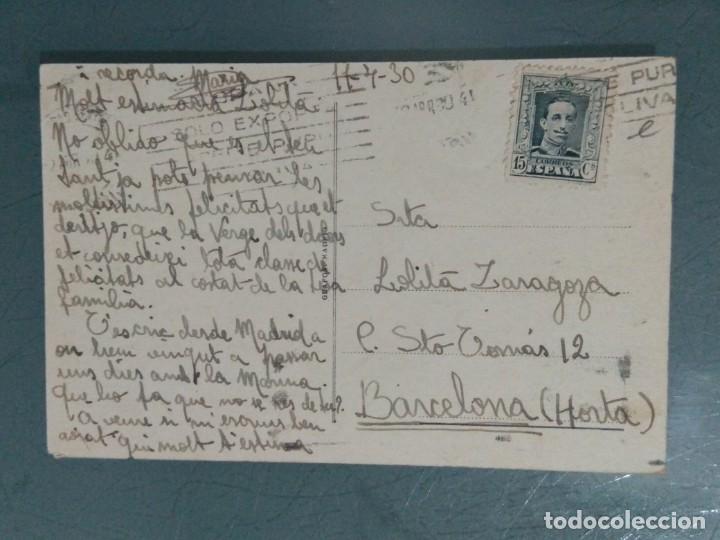 i recorda. Maria
11-4-30
Molt estimada Lolita
No oblido que es el teu
Sant ja pots pensar les
moltissimes felicitats que et
desitjo, que la Verge dels dolors
et concedeixi tota classe de
felicitats al costat de la teva
familia.
T'escric desde Madrid a
on hem vingut a passar
uns dies amb la Mamà.
que ho fa que no se res de tu?.
A veure si m'escrius ben
aviat qui molt t'estima
SOLO EXPOR
E PUR
LIVA
e
15 CORREOS Cs
ESPAÑA
Srta
Lolita Zaragoza
C. Sto Tomás 12
Barcelona (Horta)
todocoleccion.net